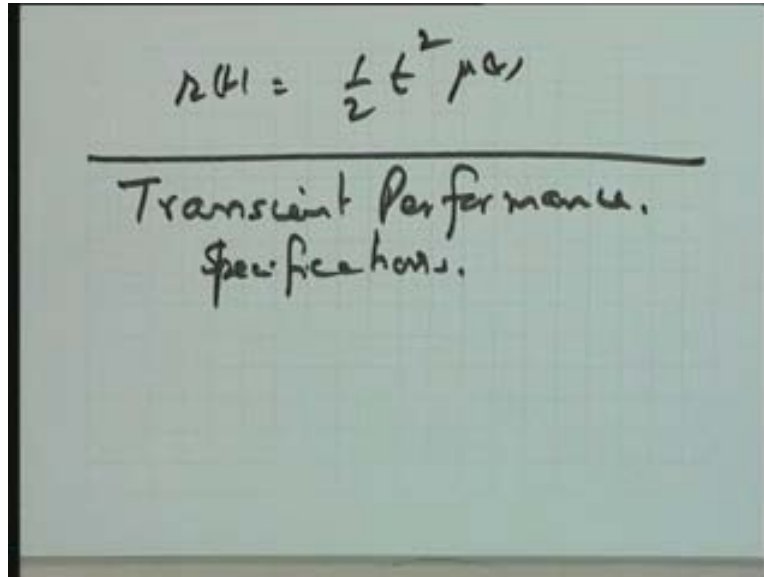 r(t) = 1/2 t² μ(t)
Transcient Performance.
Specifications.